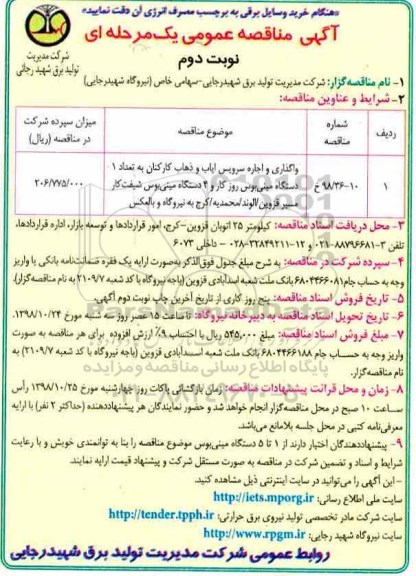 «هنگام خرید وسایل برقی به برچسب مصرف انرژی آن دقت نمایید»
آگهی مناقصه عمومی یک‌مرحله ای
نوبت دوم
شرکت مدیریت
تولید برق شهید رجائی
۱- نام مناقصه‌گزار: شرکت مدیریت تولید برق شهیدرجایی-سهامی خاص (نیروگاه شهیدرجایی)
۲- شرایط و عناوین مناقصه:
ردیف
شماره مناقصه
موضوع مناقصه
میزان سپرده شرکت در مناقصه (ریال)
۱
۹۸/۳۶-۱۰ خ
واگذاری و اجاره سرویس ایاب و ذهاب کارکنان به تعداد ۱
دستگاه مینی‌بوس روز کار و ۴ دستگاه مینی‌بوس شیفت‌کار
مسیر قزوین/الوند/محمدیه/کرج به نیروگاه و بالعکس
۲۰۶/۷۷۵/۰۰۰
۳- محل دریافت اسناد مناقصه: کیلومتر ۲۵ اتوبان قزوین-کرج، امور قراردادها و توسعه بازار، اداره قراردادها،
تلفن ۳-۸۸۷۹۶۶۸۱-۰۲۱ و ۱۲-۳۲۸۴۹۲۱۱-۰۲۸ - داخلی ۶۰۷۳
۴- سپرده شرکت در مناقصه: به شرح مبلغ جدول فوق‌الذکر به‌صورت ارایه یک فقره ضمانت‌نامه بانکی یا واریز
وجه به حساب جام ۶۸۰۴۴۶۶۰۸۱ بانک ملت شعبه اسدآبادی قزوین (باجه نیروگاه با کد شعبه ۲۱۰۹/۷ به نام مناقصه‌گزار).
۵- تاریخ فروش اسناد مناقصه: پنج روز کاری از تاریخ آخرین چاپ نوبت دوم آگهی.
۶- تاریخ تحویل اسناد مناقصه به دبیرخانه نیروگاه: تا ساعت ۱۵ عصر روز سه شنبه مورخ ۱۳۹۸/۱۰/۲۴
۷- مبلغ فروش اسناد مناقصه: مبلغ ۵۴۵,۰۰۰ ریال با احتساب ۹٪ ارزش افزوده برای هر مناقصه به صورت
واریز وجه به حساب جام ۶۸۰۴۴۶۶۱۸۸ بانک ملت شعبه اسدآبادی قزوین (باجه نیروگاه با کد شعبه ۲۱۰۹/۷) به
نام مناقصه‌گزار.
۸- زمان و محل قرائت پیشنهادات مناقصه: زمان بازگشائی پاکات روز چهارشنبه مورخ ۱۳۹۸/۱۰/۲۵ رأس
ساعت ۱۰ صبح در محل مناقصه‌گزار انجام خواهد شد و حضور نمایندگان هر پیشنهاددهنده (حداکثر ۲ نفر) با ارایه
معرفی‌نامه کتبی در محل جلسه بلامانع می‌باشد.
۹- پیشنهاددهندگان اختیار دارند از ۱ تا ۵ دستگاه مینی‌بوس موضوع مناقصه را بنا به توانمندی خویش و با رعایت
شرایط و اسناد و تضمین شرکت در مناقصه به صورت مستقل شرکت و پیشنهاد قیمت ارایه نمایند.
- این آگهی را می‌توانید در سایت اینترنتی ذیل مشاهده کنید.
سایت ملی اطلاع رسانی: http://iets.mporg.ir
سایت شرکت مادر تخصصی تولید نیروی برق حرارتی: http://tender.tpph.ir
سایت نیروگاه شهید رجایی: http://www.rpgm.ir
روابط عمومی شرکت مدیریت تولید برق شهیدرجایی